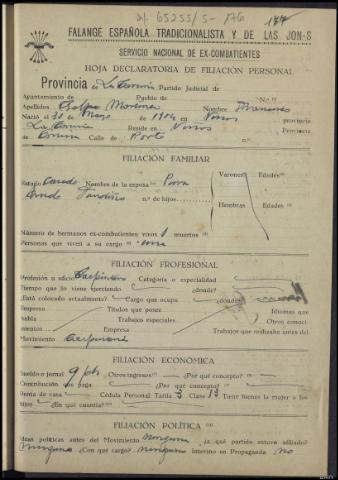 65255/5-176
177
FALANGE ESPAÑOLA TRADICIONALISTA Y DE LAS JON-S
SERVICIO NACIONAL DE EX-COMBATIENTES
HOJA DECLARATORIA DE FILIACIÓN PERSONAL
Provincia de La Coruña Partido Judicial de
Ayuntamiento de Pueblo de N.º
Apellidos Moreno Nombre Francisco
Nació el 30 de Marzo de 1904 en provincia
La Coruña Reside en Provincia
Coruña Calle de
FILIACIÓN FAMILIAR
Estado Casado Nombres de la esposa Varones Edades
n.º de hijos Hembras Edades
Número de hermanos ex-combatientes vivos 1 muertos
Personas que viven a su cargo una
FILIACIÓN PROFESIONAL
Profesión u oficio Carpintero Categoría o especialidad
Tiempo que lo viene ejerciendo ¿dónde?
¿Está colocado actualmente? Cargo que ocupa ¿dónde?
Empresa Títulos que posee Idiomas que
habla Trabajos especiales Otros conoci-
mientos Empresa Trabajos que realizaba antes del
Movimiento Carpintero
FILIACIÓN ECONÓMICA
Sueldo o jornal 9 pts Otros ingresos ¿Por qué concepto?
Contribución que paga ¿Por qué concepto?
Renta de casa Cédula Personal Tarifa 3 Clase 13 Tiene bienes la mujer o los
hijos ¿En qué cuantía?
FILIACIÓN POLÍTICA
Ideas políticas antes del Movimiento ninguna ¿a qué partido estuvo afiliado?
ninguno ¿Con qué cargo? ninguno intervino en Propaganda no